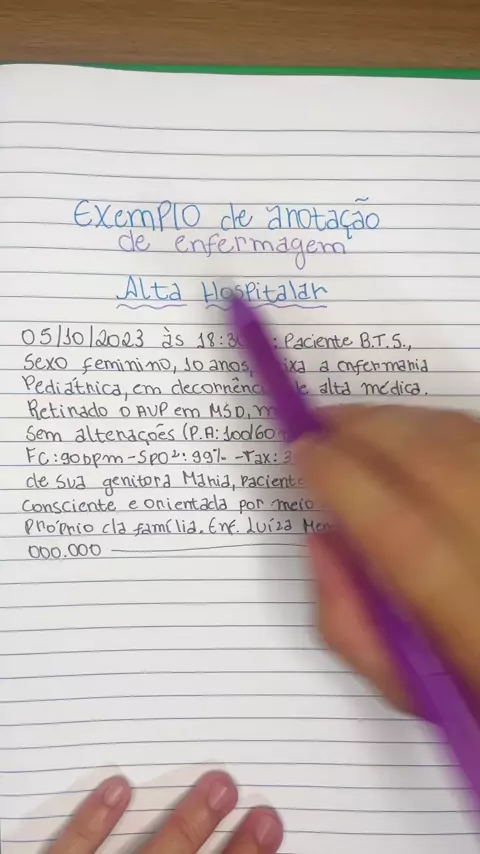 Exemplo de anotação
de enfermagem
Alta Hospitalar
05/10/2023 às 18:30 : Paciente B.T.S.,
Sexo feminino, 10 anos, a enfermaria
Pediátrica, em decorrência de alta médica.
Retirado o AVP em MSD,
Sem alterações (P.A: 100/60
FC: 90bpm - SPO²: 99% - Tax: 3
de sua genitora Maria, paciente
consciente e orientada por meio
próprio da família. Enf. Luíza
000.000